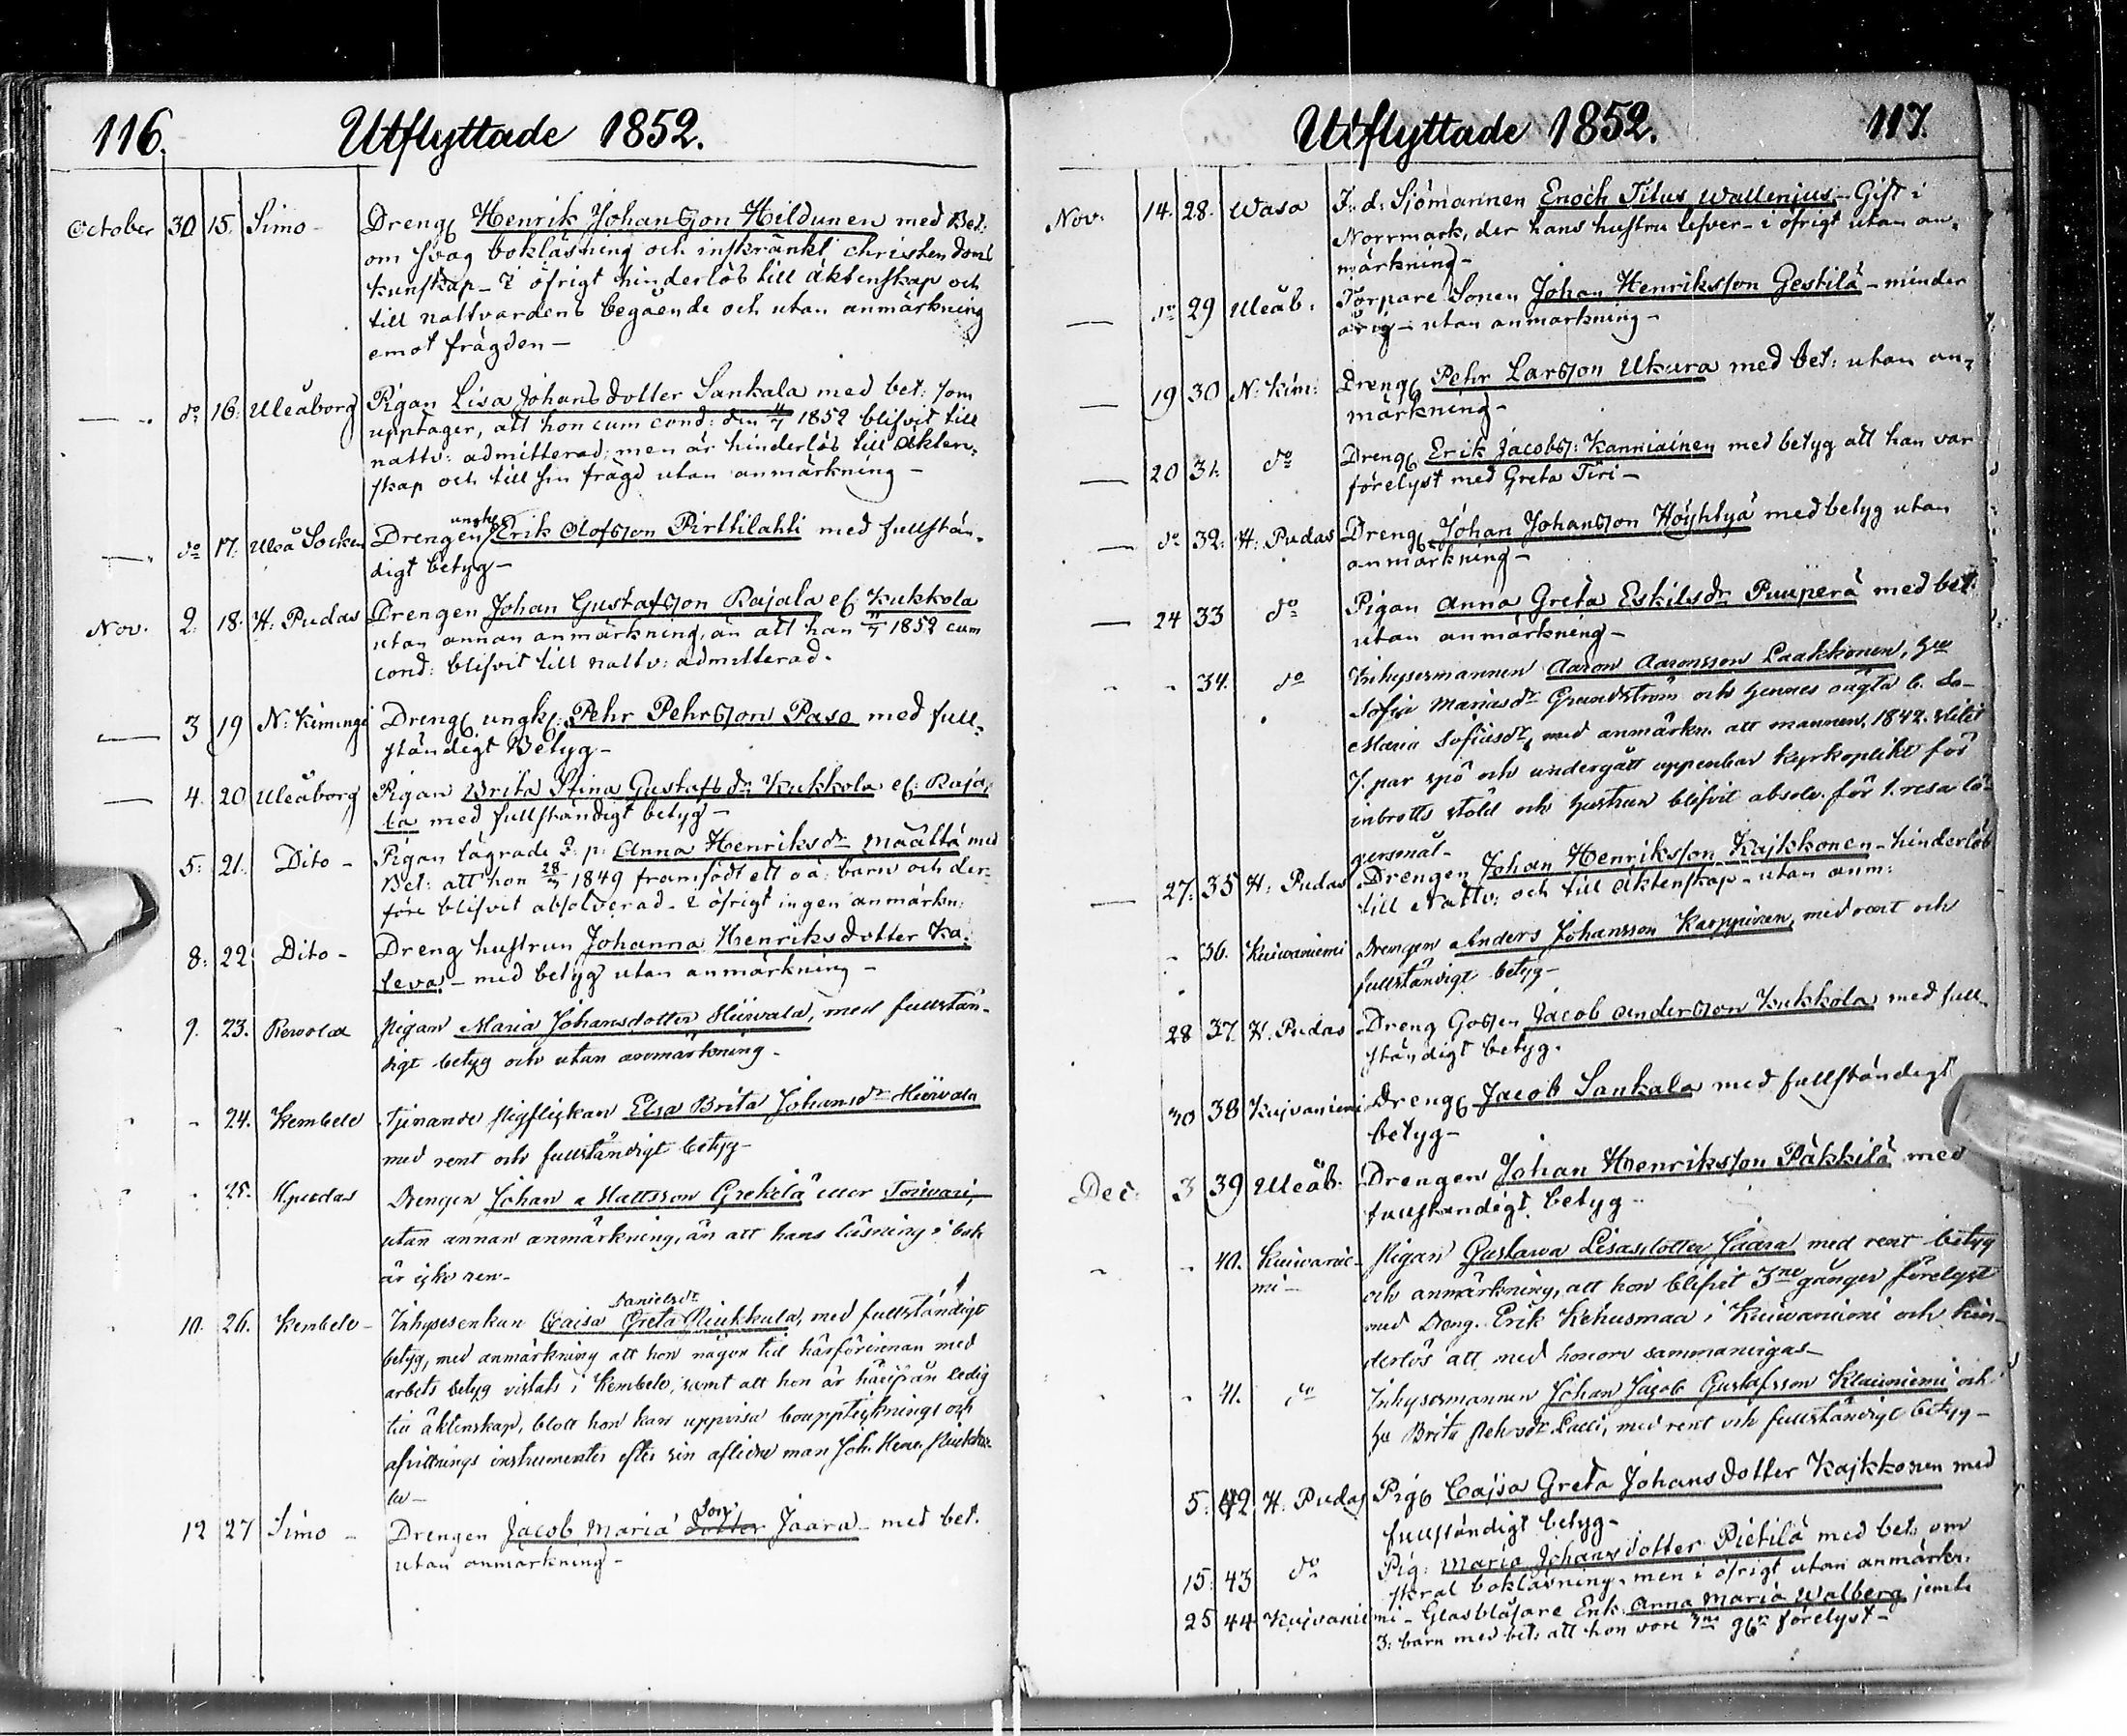 116. Utflyttade 1852.
October 30 15. Simo - Dreng Henrik Johansson Hildunen med Bet:
om svag bokläsning och inskränkt christendoms
kunskap - i öfrigt hinderlös till äktenskap och
till nattvardens begående och utan anmärkning
emot frägden -
do 16. Uleåborg Pigan Lisa Johansdotter Sankala med bet: som
upptager, att hon cum cond: den 1852 blifvit till
nattv: admitterad; men är hinderlös till äkten-
skap och till sin frägd utan anmärkning -
do 17. Uleå Socken Drengen Erik Olofsson Pirttilahti med fullstän-
digt betyg -
Nov. 2. 18. H. Pudas Drengen Johan Gustafsson Rajala el. Kukkola
utan annan anmärkning, än att han 1852 cum
cond: blifvit till nattv: admitterad.
3 19 N: Kimingi Dreng ungk: Pehr Pehrsson Paso med full-
ständigt Betyg -
4. 20 Uleåborg Pigan Brita Stina Gustafsdr Kukkola el: Raja-
la med fullständigt betyg -
5: 21. Dito - Pigan lägrade q: p: Anna Henriksdr Määttä med
Bet: att hon 1849 framfödt ett o ä: barn och der-
före blifvit absolverad - i öfrigt ingen anmärkn:
8: 22. Dito - Dreng hustrun Johanna Henriksdotter Ka-
leva - med betyg utan anmärkning -
9. 23. Revola Pigan Maria Johansdotter Hiirvala, med fullstän-
digt betyg och utan anmärkning -
- 24. Kembele Tjenande pigflickan Elsa Brita Johansdr Hiirvala
med rent och fullständigt betyg -
- 25. Hpudas Drengen Johan Mattsson Grekelä eller Toivari,
utan annan anmärkning, än att hans läsning i bok
är icke ren -
Danielsdr
10. 26. Kembele - Inhysesenkan Caisa Greta Niukkula, med fullständigt
betyg, med anmärkning att hon någon tid härförinnan med
arbets betyg vistats i Kembele, samt att hon är ledig
till äktenskap, blott hon kan uppvisa bouppteknings och
afvittrings instrumenter efter sin aflidne man Joh. Henr. Niukku-
la -
Son
12 27 Simo - Drengen Jacob Maria dotter Jaara - med bet.
utan anmärkning -
Utflyttade 1852. 117.
Nov. 14. 28. Wasa F. d. Sjömannen Enoch Titus Wallenius - Gift i
Norrmark, der hans hustru lefver - i öfrigt utan an-
märkning -
do 29 Uleåb. Torpare Sonen Johan Henriksson Gestilä - minder
årig - utan anmärkning -
19 30 N: Kim: Dreng Pehr Larsson Ukura med bet: utan an-
märkning -
20 31. do Dreng Erik Jacobss: Kanniainen med betyg att han var
förelyst med Greta Tiri -
do 32. H: Pudas Dreng Johan Johansson Höyhtyä med betyg utan
anmärkning -
24 33 do Pigan Anna Greta Eskilsdr Puuperä med bet:
utan anmärkning -
- - 34. do Inhysesmannen Aaron Aaronsson Laakkonen, Hu
Sofia Mariasdr Grundström och hennes oägta
Maria Sofiasdr, med anmärkn. att mannen 1842 slitit
7. par spö och undergått uppenbar kyrkoplikt för
inbrotts stöld och hustrun blifvit absolv. för 1. resa lö-
gersmål -
27. 35 H: Pudas Drengen Johan Henriksson Kajkkonen - hinderlös
till Nattv: och till äktenskap - utan anm:
- 36. Kuivaniemi Drengen Anders Johansson Karppinen, med rent och
fullständigt betyg -
28 37. H. Pudas Dreng Gossen Jacob Andersson Kukkola med full-
ständigt betyg.
30 38 Kujvaniemi Dreng Jacob Sankala med fullständigt
betyg -
Dec: 3 39 Uleåb: Drengen Johan Henriksson Päkkilä med
fullständigt betyg -
- 40. Kuivanie-
mi - Pigan Gustava Lisasdotter Jaara med rent betyg
och anmärkning, att hon blifvit 3ne gånger förelyst
med Dreng. Erik Kehusmaa i Kuivaniemi och hin-
derlös att med honom sammanvigas -
- 41. do Inhysesmannen Johan Jacob Gustafsson Klaivoniemi och
Hu Brita Pehrsdr Lalli, med rent och fullständigt betyg -
5: 42 H: Pudas Pig Cajsa Greta Johansdotter Kajkkonen med
fullständigt betyg -
15: 43 do Pig: Maria Johansdotter Pietilä med bet: om
skral bokläsning, men i öfrigt utan anmärkn.
25 44 Kujvaniemi - Glasblåsare Enk. Anna Maria Walberg jemte
3: barn med bet: att hon vore 3ne ggr förelyst -